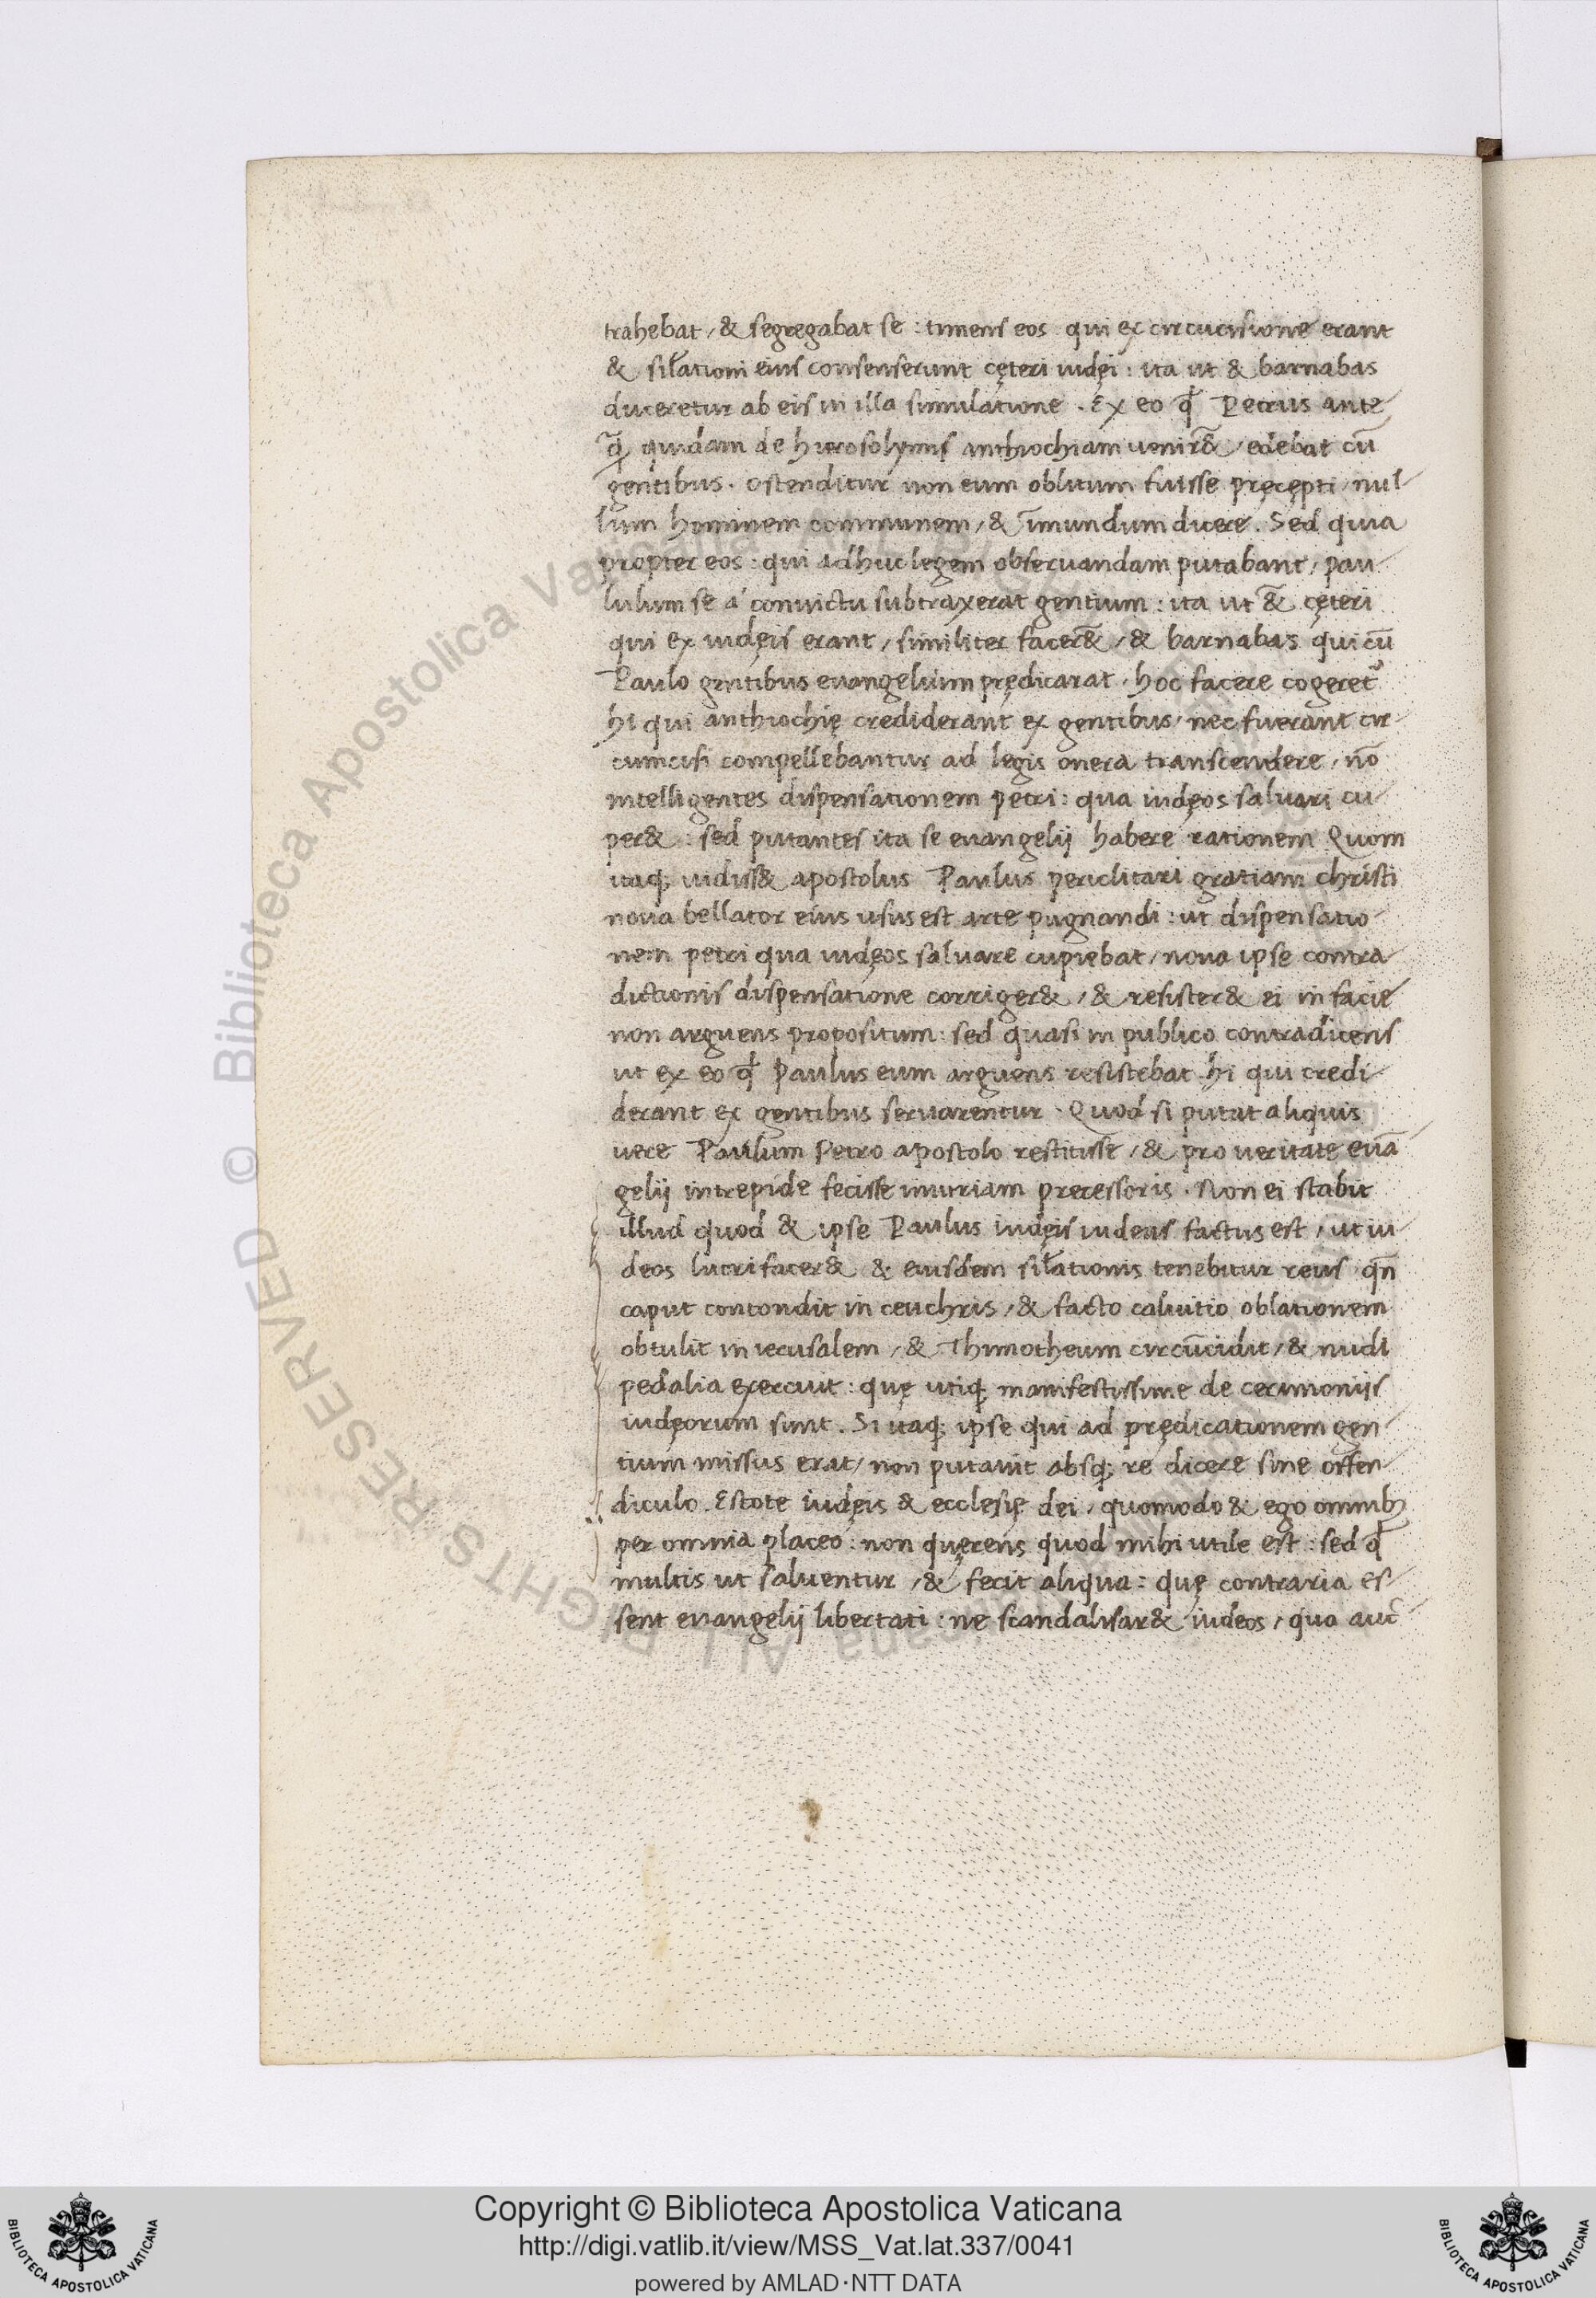 trahebat, & segregabat se : timens eos qui ex circucisione erant
& sił'ationi eius consenserunt cęteri iudęi : ita ut & barnabas
duceretur ab eis in illa simulatione . Ex eo qđ Petrus ante
q̃ quidam de hierosolymis anthiochiam uenir&̃, edebat cũ
gentibus . ostenditur non eum oblitum fuisse pręcępti, nul-
lum hominem communem, & ĩmundum dicere . Sed quia
propter eos : qui adhuc legem obseruandam putabant, pau-
lulum se á conuictu subtraxerat gentium : ita ut &̃ cęteri
qui ex iudęis erant, similiter facer&̃, & barnabas qui cũ
Paulo gentibus euangelium prędicarat, hoc facere cogeret᷑
hi qui anthiochię crediderant ex gentibus, nec fuerant cir-
cumcisi compellebantur ad legis onera transcendere, nõ
intelligentes dispensationem petri : qua iudęos saluari cu-
per& : sed putantes ita se euangelij habere rationem Quom
itaq; uidiss& apostolus Paulus periclitari gratiam christi
noua bellator eius usus est arte pugnandi : ut dispensatio-
nem petri qua iudęos saluare cupiebat, noua ipse contra-
dictionis dispensatione corriger&, & resister& ei in facie
non arguens propositum : sed quasi in publico contradicens
ut ex eo qđ Paulus eum arguens resistebat hi qui credi-
derant ex gentibus seruarentur . Quod si putat aliquis
uere Paulum Petro apostolo restitisse, & pro ueritate euã-
gelij intrepide fecisse iniuriam precessoris . Non ei stabit
illud quod & ipse Paulus iudęis iudeus factus est, ut iu-
deos lucrifacer& & eiusdem sił'ationis tenebitur reus qñ
caput contondit in cenchris, & facto caluitio oblationem
obtulit in ierusalem, & Thimotheum circũcidit, & nudi
pedalia exercuit : quę utiq; manifestissime de cerimoniis
iudęorum sunt . Si itaq; ipse qui ad prędicationem gen-
tium missus erat, non putauit absq; re dicere sine offen-
diculo . Estote iudęis & ecclesię dei, quomodo & ego omnib;
per omnia placeo : non quęrens quod mihi utile est : sed qđ
multis ut saluentur, & fecit aliqua : quę contraria es-
sent euangelij libertati : ne scandalisar& iudeos, qua auc̃
Copyright © Biblioteca Apostolica Vaticana
http://digi.vatlib.it/view/MSS_Vat.lat.337/0041
powered by AMLAD·NTT DATA
BIBLIOTECA APOSTOLICA VATICANA
BIBLIOTECA APOSTOLICA VATICANA
© Biblioteca Apostolica Vaticana ALL RIGHTS RESERVED